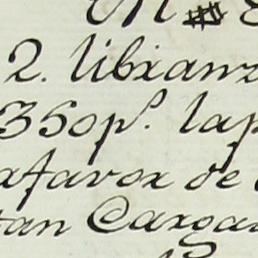 2. libranz
350p.s lap
afavor de
tan Carga